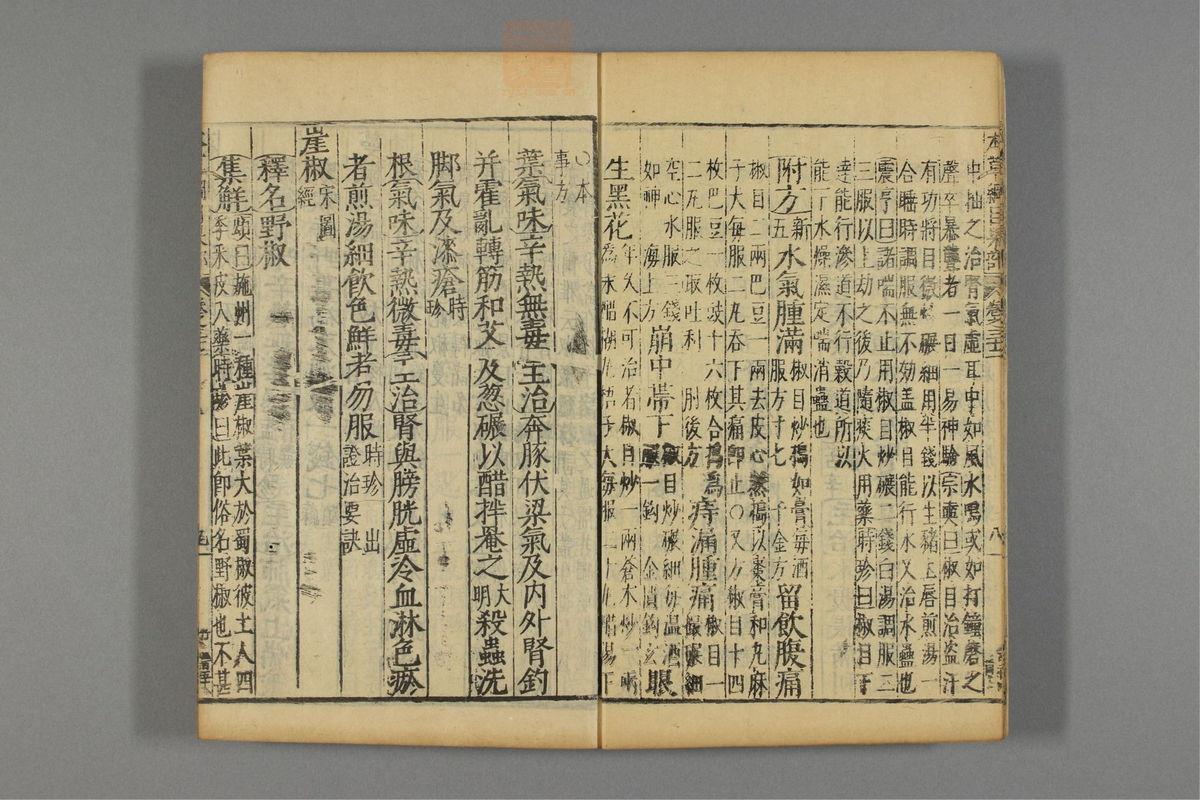 中抽之治腎氣虛耳中如風水鳴或如打鐘磬之
聲卒暴聾者一日一易神驗宗奭曰椒目治盜汗
有功將目微炒碾細用半錢以生豬上唇煎湯一
合睡時調服無不効盖椒目能行水又治水蠱也
震亨曰諸喘不止用椒目炒碾二錢白湯調服二
三服以上劫之後乃隨痰火用藥時珍曰椒目下
達能行滲道不行穀道所以
能下水燥濕定喘消蠱也
附方新五水氣腫滿椒目炒搗如膏每酒服方寸七千金方留飲腹痛
椒目二兩巴豆一兩去皮心熬搗以棗膏和丸麻
子大每服二丸吞下其痛即止○又方椒目十四
枚巴豆一枚豉十六枚合搗為二丸服之取吐利肘後方痔漏腫痛椒目一撮碾細
空心水服三錢如神海上方崩中帶下椒目炒碾細每温酒一鈎金匱鈎玄眼
生黑花年久不可治者椒目炒一兩蒼朮炒一兩為末醋糊丸梧子大每服二十丸醋湯下
○本事方
葉氣味辛熱無毒主治奔豚伏梁氣及内外腎釣
并霍亂轉筋和艾及葱碾以醋拌罨之大明殺蟲洗
脚氣及漆瘡時珍
根氣味辛熱微毒主治腎與膀胱虛冷血淋色瘀
者煎湯細飲色鮮者勿服時珍出證治要訣
崖椒宋圖經
釋名野椒
集解頌曰施州一種崖椒葉大於蜀椒彼土人四季采皮入藥時珍曰此即俗名野椒也不甚